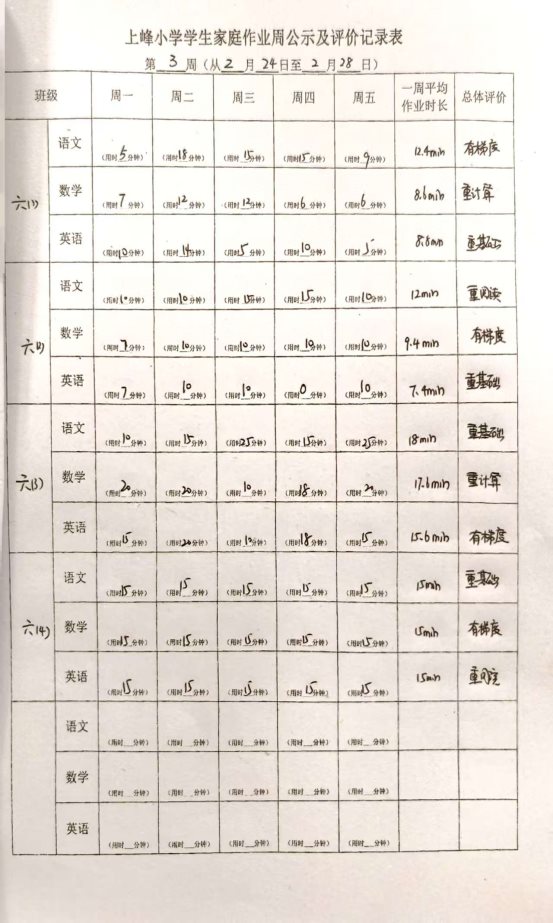 上峰小学学生家庭作业周公示及评价记录表
第 3 周（从 2 月 24 日至 2 月 28 日）
班级 周一 周二 周三 周四 周五 一周平均作业时长 总体评价
六(1) 语文 （用时5分钟） （用时18分钟） （用时15分钟） （用时15分钟） （用时9分钟） 12.4min 有梯度
数学 （用时7分钟） （用时12分钟） （用时12分钟） （用时6分钟） （用时6分钟） 8.6min 重计算
英语 （用时10分钟） （用时14分钟） （用时5分钟） （用时10分钟） （用时5分钟） 8.8min 重基础
六(2) 语文 （用时10分钟） （用时10分钟） （用时15分钟） （用时15分钟） （用时10分钟） 12min 重阅读
数学 （用时7分钟） （用时10分钟） （用时10分钟） （用时10分钟） （用时10分钟） 9.4min 有梯度
英语 （用时7分钟） （用时10分钟） （用时10分钟） （用时0分钟） （用时10分钟） 7.4min 重基础
六(3) 语文 （用时10分钟） （用时15分钟） （用时25分钟） （用时15分钟） （用时25分钟） 18min 重基础
数学 （用时20分钟） （用时20分钟） （用时10分钟） （用时18分钟） （用时20分钟） 17.6min 重计算
英语 （用时15分钟） （用时20分钟） （用时10分钟） （用时18分钟） （用时15分钟） 15.6min 有梯度
六(4) 语文 （用时15分钟） （用时15分钟） （用时15分钟） （用时15分钟） （用时15分钟） 15min 重基础
数学 （用时15分钟） （用时15分钟） （用时15分钟） （用时15分钟） （用时15分钟） 15min 有梯度
英语 （用时15分钟） （用时15分钟） （用时15分钟） （用时15分钟） （用时15分钟） 15min
语文 （用时__分钟） （用时__分钟） （用时__分钟） （用时__分钟） （用时__分钟）
数学 （用时__分钟） （用时__分钟） （用时__分钟） （用时__分钟） （用时__分钟）
英语 （用时__分钟） （用时__分钟） （用时__分钟） （用时__分钟） （用时__分钟）